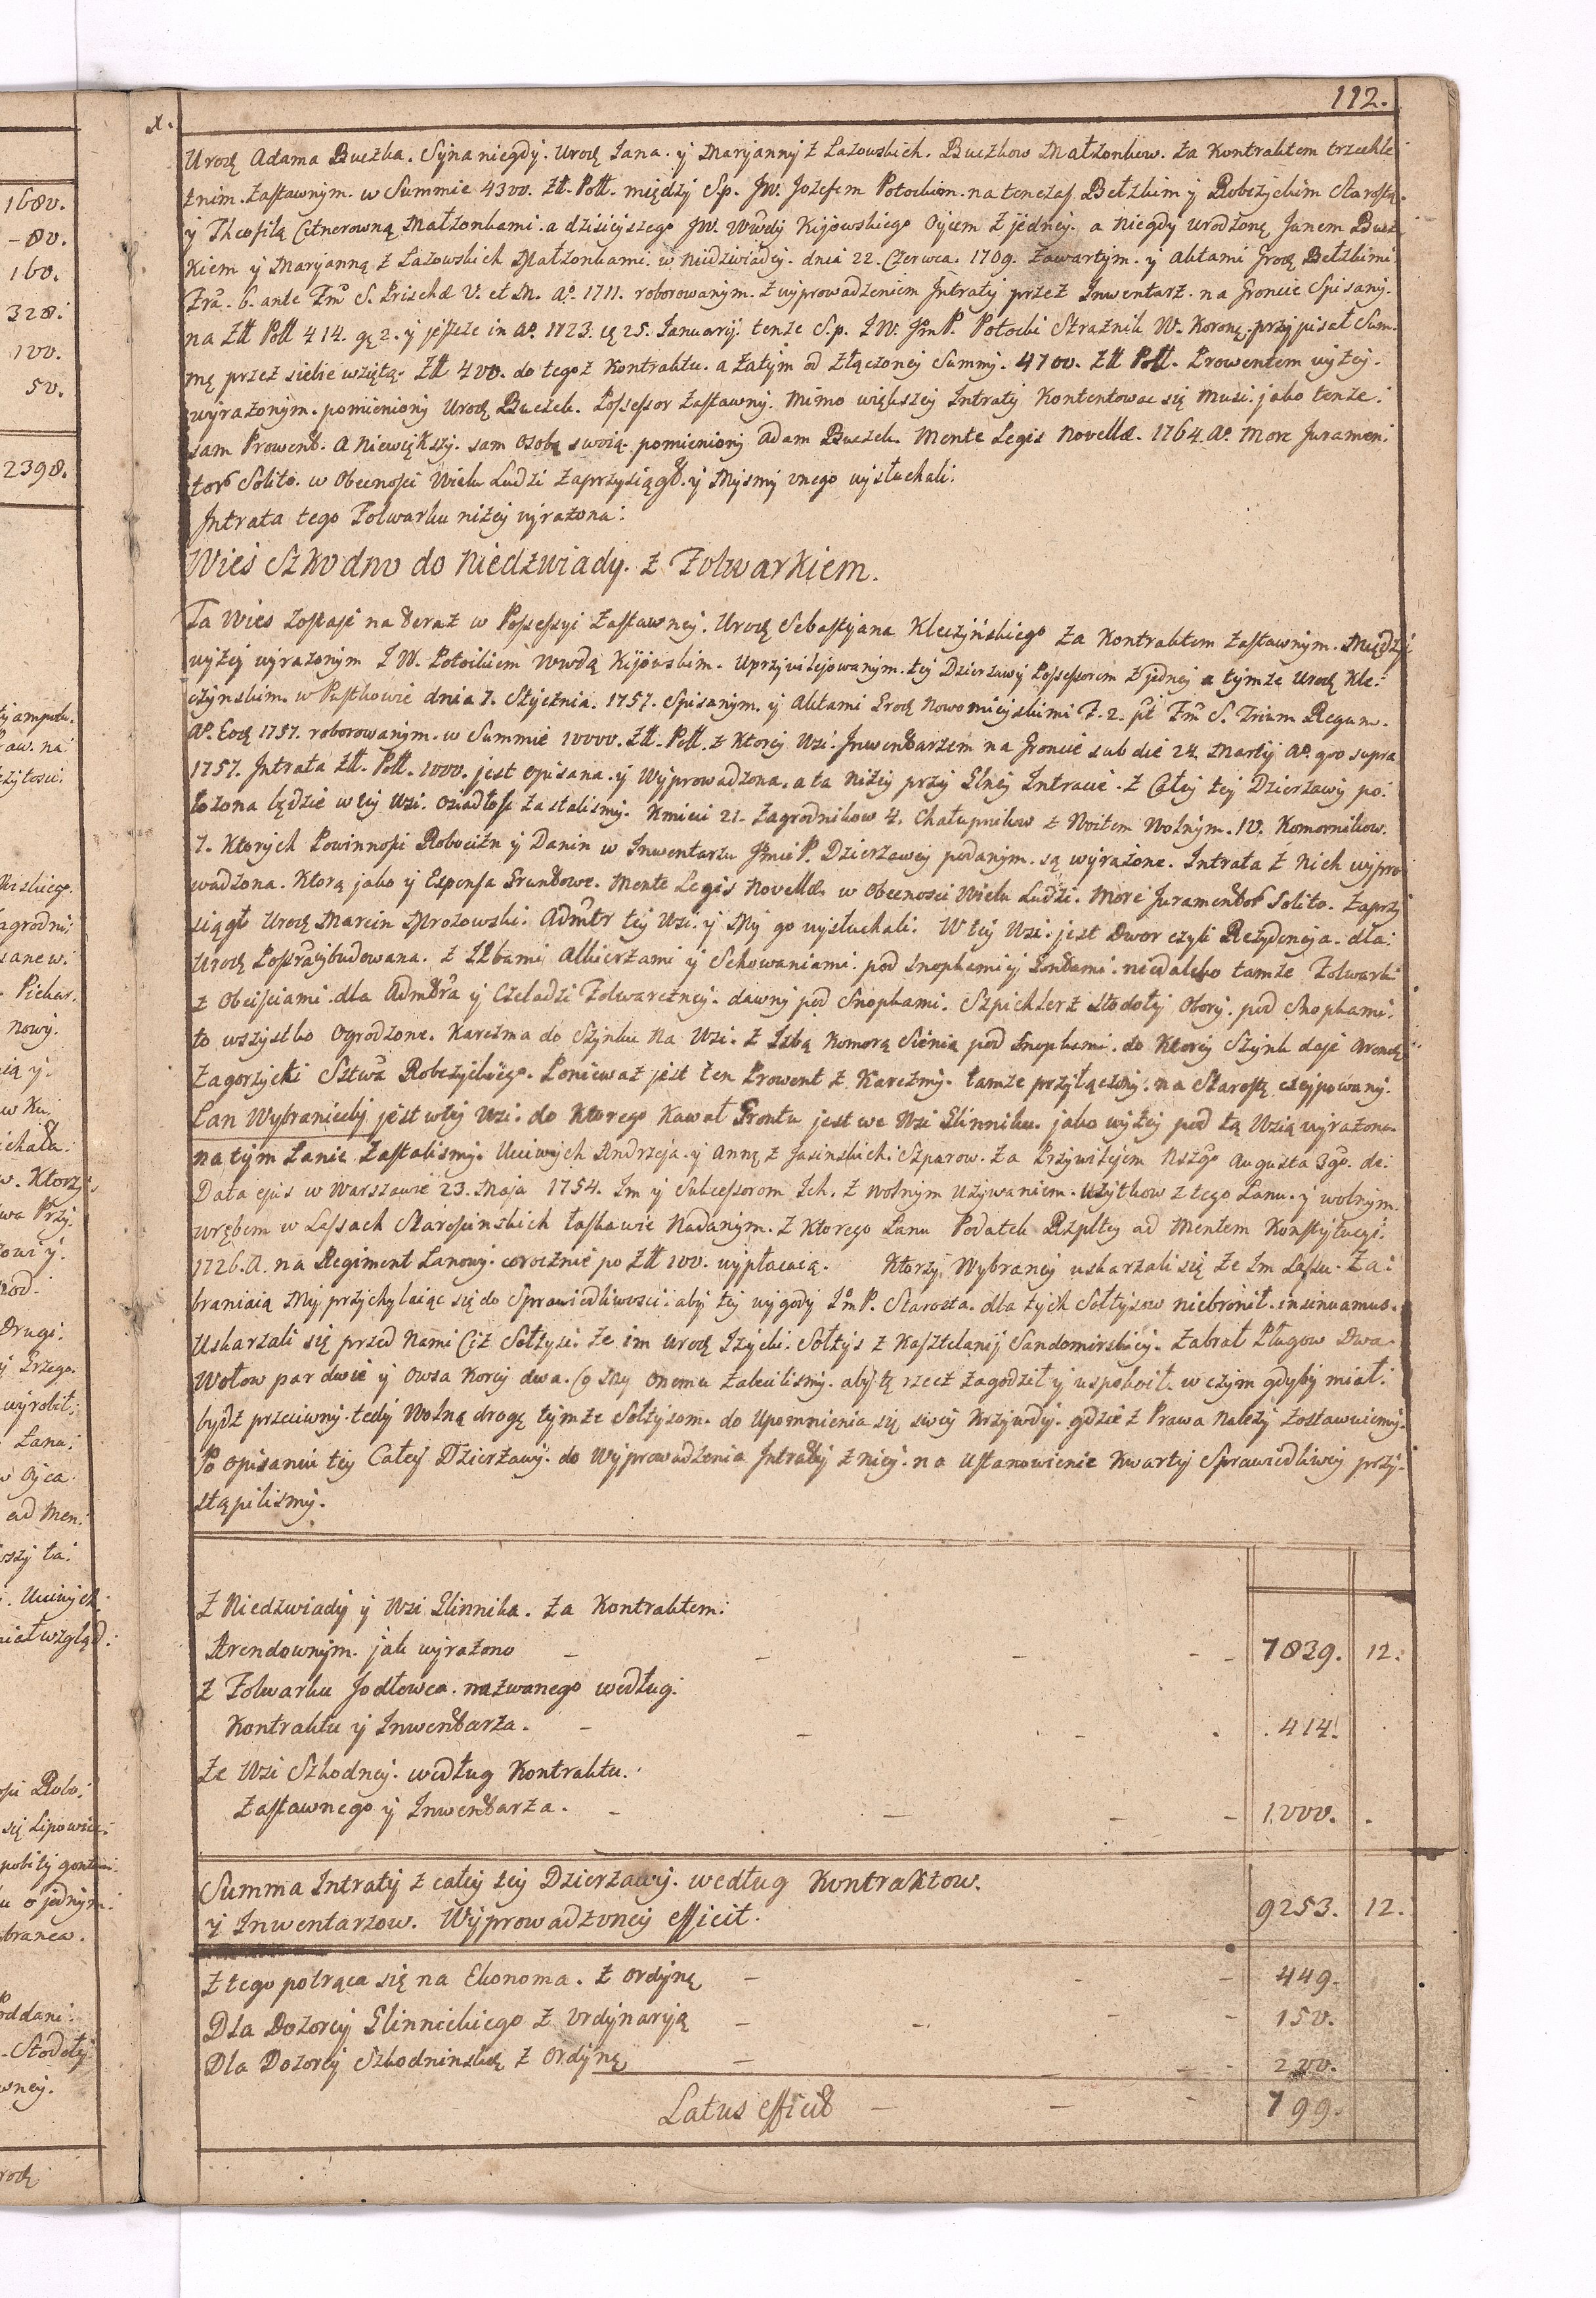 112.
Urodz Adama Buczka. Syna niegdy. Urodz Jana. y Maryanny z Lazowskich. Buczkow Małzonkow. za Kontraktem trzechle:
tnim. Zastawnym. w Summie 4300. Zł. Poll. między S.p. JW. Jozefem Potockim. na tenczas Bełzkim y Robczyckim Starostą.
y Theofilą Cetnerowną Małzonkami. a dzisieyszego JW. Wwdy Kijowskiego Oycem z jedney. a niegdy urodzoną Janem Bucz:
kiem y Maryanną z Lazowskich Małzonkami. w Niedzwiadcy. dnia 22. Czerwca. 1709. zawartym. y aktami Grodz Bełzkimi
Fra. 6. ante Fm S. Priscæ V. et M. Ao. 1711. roborowanym. z wyprowadzeniem Intraty przez Inwentarz. na Groncie Spisany.
na Złł Poll 414. g 2. y jeszcze in Ao. 1723. 25. January. tenze S.p. JW. Jm P. Potocki Straznik W. Koronę. przypisał Sum-
mę przez siebie wziętą. Złł 400. do tegoz Kontraktu. a zatym od złączoney Summy. 4700. Złł Poll. Prowentem wyzey.
wyrazonym. pomieniony Urodz Buczek. Possessor Zastawny. Mimo większey Intraty Kontentowac się Musi. jako tenze:
sam Prowent. a niewiększy. sam osobą swoią. pomieniony Adam Buczek. Mente Legis Novellæ. 1764. Ao. More Juramen:
tor Solito. w Obecnosci Wielu Ludzi zaprzysiągł. y Mysmy onego wysłuchali.
Intrata tego Folwarku nizey wyrazona:
Wies Szkodno do Niedzwiady. z Folwarkiem.
Ta Wies zostaje na teraz w Possessyi Zastawney. Urodz Sebastyana Kleczyńskiego za Kontraktem Zastawnym. Między
wyzey wyrazonym JW. Potockiem Wwdą Kijowskim. Uprzywilejowanym. tey Dzierzawy Possessorem z jedney a tymze Urodz Kle:
czynskim. w Pustkowie dnia 7. Stycznia. 1757. Spisanym. y Aktami Grodz Nowomieyskimi F. 2. pt Fm S. Trium Regum.
Ao. Eod 1757. roborowanym. w Summie 10000. Złł. Poll. z Ktorey Wsi. Inwentarzem na Groncie sub die 24. Martij Ao. quo supra
1757. Intrata Złł. Poll. 1000. jest opisana. y Wyprowadzona. a ta nizey przy Glney Intracie. z Całey tey Dzierzawy po:
łozona będzie w tey Wsi. osiadłosc zastalismy. Kmieci 21. Zagrodnikow 4. Chałupnikow z Woitem Wolnym. 10. Komornikow.
7. Ktorych Powinnosci Robocizn y Danin w Inwentarzu Jmci P. Dzierzawcy podanym. są wyrazone. Intrata z nich wypro
wadzona. Ktorą jako y Expensa Gruntowe. Mente Legis Novellæ. w Obecnosci Wielu Ludzi. More Juramentor Solito. Zaprzy
siągł Urodz Marcin Mrozowski. Admtr tey Wsi. y My go wysłuchali. W tey Wsi. jest Dwor czyli Rezydencja. dla:
Urodz Possra wybudowana. z Izbami Alkierzami y Schowaniami. pod Snopkami y Gontami. niedaleko tamze Folwark
z Obeisciami. dla Admtra y Czeladzi Folwarczney. dawny pod Snopkami. Szpichlerz stodoły Obory. pod Snopkami:
to wszystko Ogrodzone. Karczma do Szynku na Wsi. z Izbą Komorą Sienią pod Snopkami. do Ktorey Szynk daje Arendę
Zagorzycki Sztwa Robczyckiego. Poniewaz jest ten Prowent z Karczmy. tamze przyłączony. na Starostę czerpowany.
Lan Wybraniecky jest w tey Wsi. do Ktorego Kawał Gruntu jest we Wsi Glinniku. jako wyzey pod tą Wsią wyrazono.
na tym Lanie Zastalismy. Uciwych Andrzeja. y Annę z Jasinskich. Szparow. za Przywilejem Nszgo Augusta 3go. de.
Data ejus w Warszawie 23. Maja 1754. Im y Sukcessorom Ich. z wolnym uzywaniem. uzytkow z tego Lanu. y wolnym.
wrębem w Lassach Starosinskich łaskawie Nadanym. z Ktorego Lanu Podatek Rzpltey ad Mentem Konstytucyi.
1726. A. na Regiment Lanowy. corocznie po Złł 100. wypłacaią. Ktorzy Wybrancy uskarzali się Ze Im Lassu. Za:
braniaią My przychylaiąc się do Sprawiedliwosci. aby tey wygody Jm P. Starosta. dla tych Sołtysow niebronił. insinuamus.
Uskarzali się przed Nami Ciz Sołtysi. ze im Urodz Izycki. Sołtys z Kasztelanij Sandomirskiey. zabrał Pługow Dwa.
Wołow par dwie y Owsa Korcy dwa. Co My Onemu zalecilismy. aby tę rzecz zagodził y uspokoił. w czym gdyby miał:
bydz przeciwny. tedy Wolną drogę tymze Sołtysom. do Upomnienia się swey Krzywdy. gdzie z Prawa nalezy zostawuiemy.
Po opisaniu tey Całey Dzierzawy. do Wyprowadzenia Intraty z niey. na Ustanowienie Kwarty Sprawiedliwey przy-
stąpilismy.
Z Niedzwiady y Wsi Glinnika. za Kontraktem:
Arendownym. jak wyrazono - - - - 7839. 12.
Z Folwarku Jodłowca. nazwanego według:
Kontraktu y Inwentarza. - - - . 414.
Ze Wsi Szkodney. według Kontraktu.
Zastawnego y Inwentarza. - - - - 1000. .
Summa Intraty z całey tey Dzierzawy. według Kontraktow.
y Inwentarzow. Wyprowadzoney efficit. 9253. 12.
Z tego potrąca się na Ekonoma. z Ordynę - - - 449.
Dla Dozorcy Glinnickiego z Ordynaryą - - - - 150.
Dla Dozorcy Szkodninskę z Ordynę - - - - 200.
Latus efficit - - - 799.